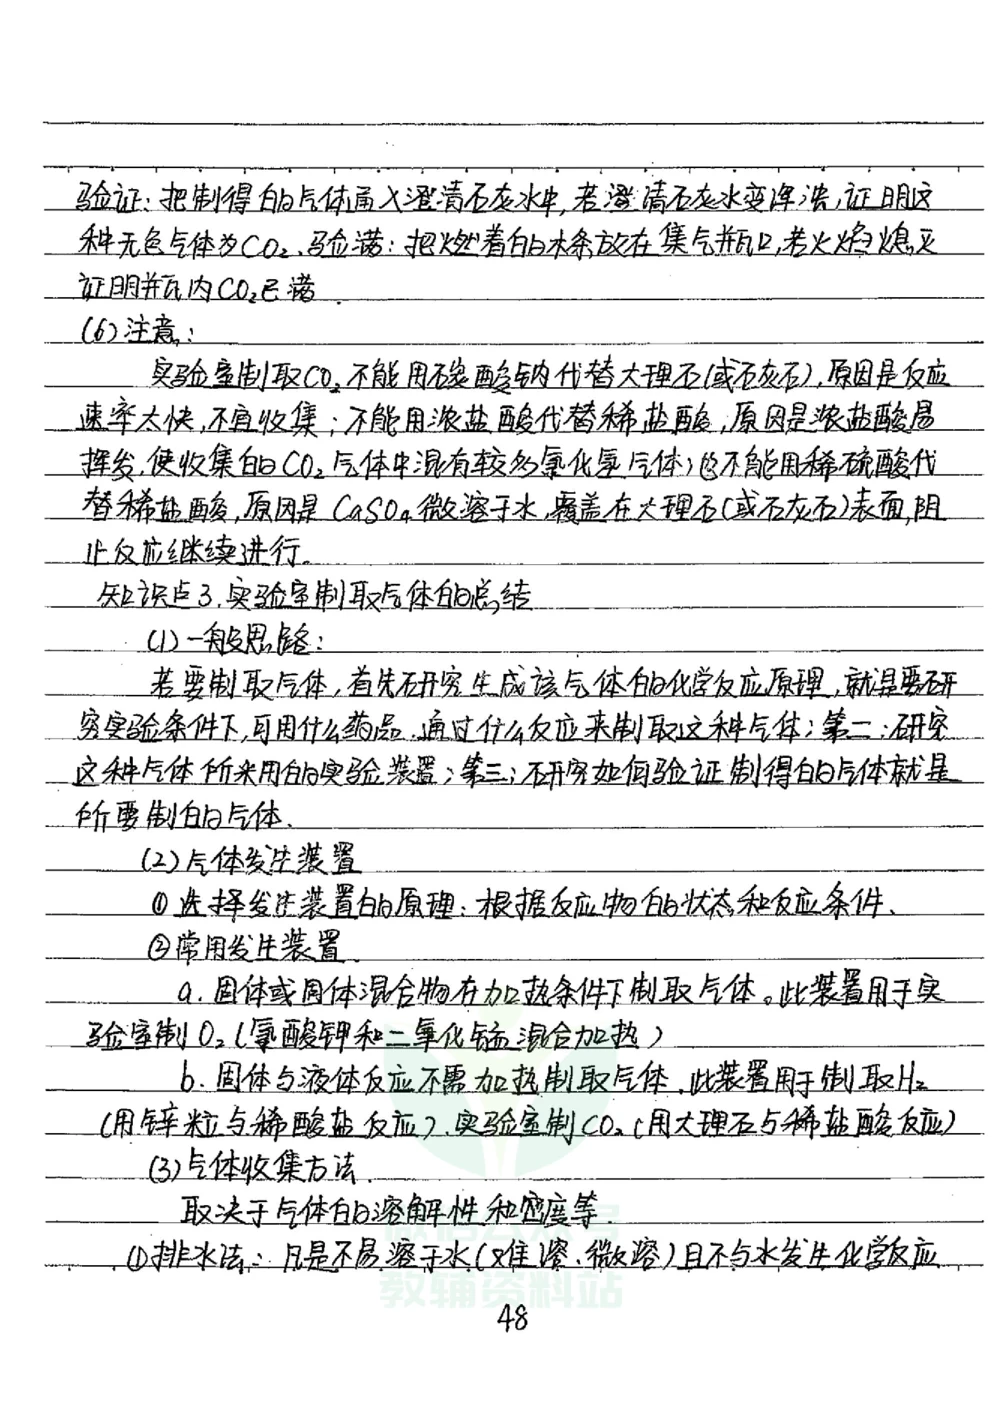 验证：把制得的气体通入澄清石灰水中，若澄清石灰水变浑浊，证明这
种无色气体为CO₂、验满：把燃着的木条放在集气瓶口，若火焰熄灭
证明瓶内CO₂已满．
(6)注意：
实验室制取CO₂不能用碳酸钠代替大理石(或石灰石)，原因是反应
速率太快，不宜收集；不能用浓盐酸代替稀盐酸，原因是浓盐酸易
挥发，使收集的CO₂气体中混有较多氯化氢气体；也不能用稀硫酸代
替稀盐酸，原因是 CaSO₄微溶于水，覆盖在大理石(或石灰石)表面，阻
止反应继续进行。
知识点3.实验室制取气体的总结
(1)一般思路：
若要制取气体，首先研究生成该气体的化学反应原理，就是要研
究实验条件下，可用什么药品．通过什么反应来制取这种气体；第二：研究
这种气体所采用的实验装置；第三：研究如何验证制得的气体就是
所要制的气体．
(2)气体发生装置
①选择发生装置的原理：根据反应物的状态和反应条件．
②常用发生装置．
a．固体或固体混合物在加热条件下制取气体。此装置用于实
验室制O₂(氯酸钾和二氧化锰混合加热)
b．固体与液体反应不需加热制取气体．此装置用于制取H₂
(用锌粒与稀酸盐反应)．实验室制CO₂(用大理石与稀盐酸反应)
(3)气体收集方法．
取决于气体的溶解性和密度等．
①排水法：凡是不易溶于水(难溶、微溶)且不与水发生化学反应
微信公众号
教辅资料站
48